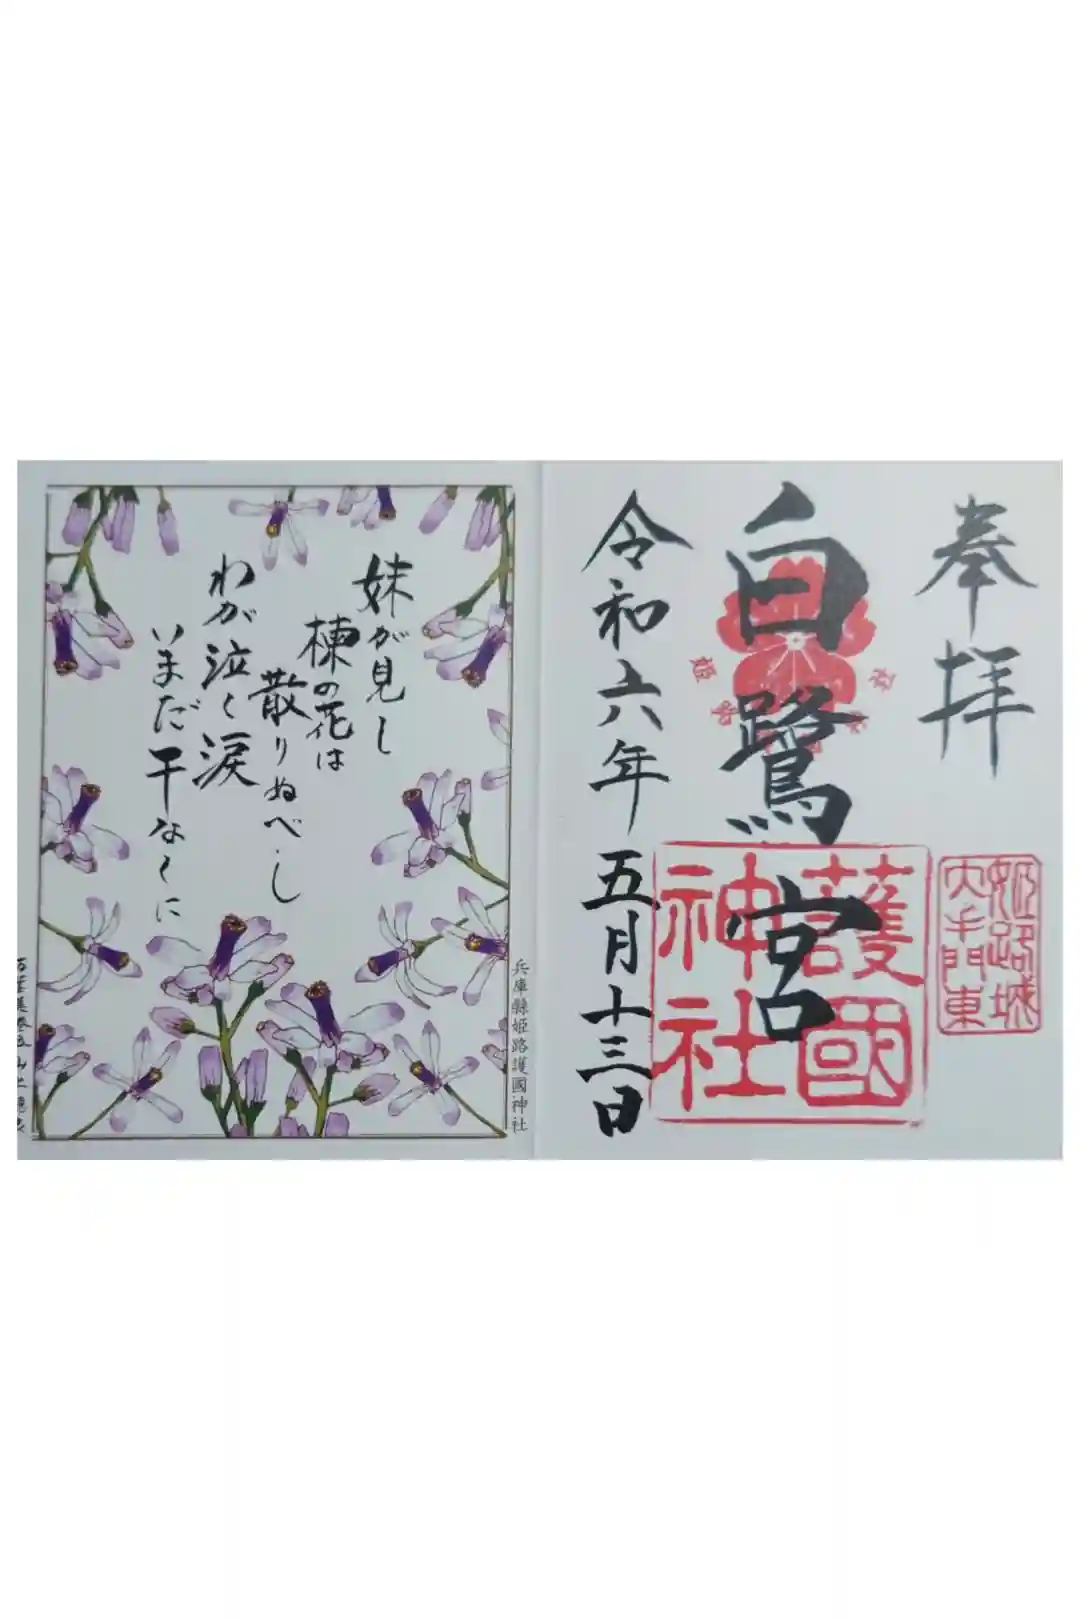 奉拝
姫路城
大手門東
白鷺宮
護國
神社
令和六年五月十三日
兵庫縣姫路護國神社
妹が見し
楝の花は
散りぬべし
わが泣く涙
いまだ干なくに